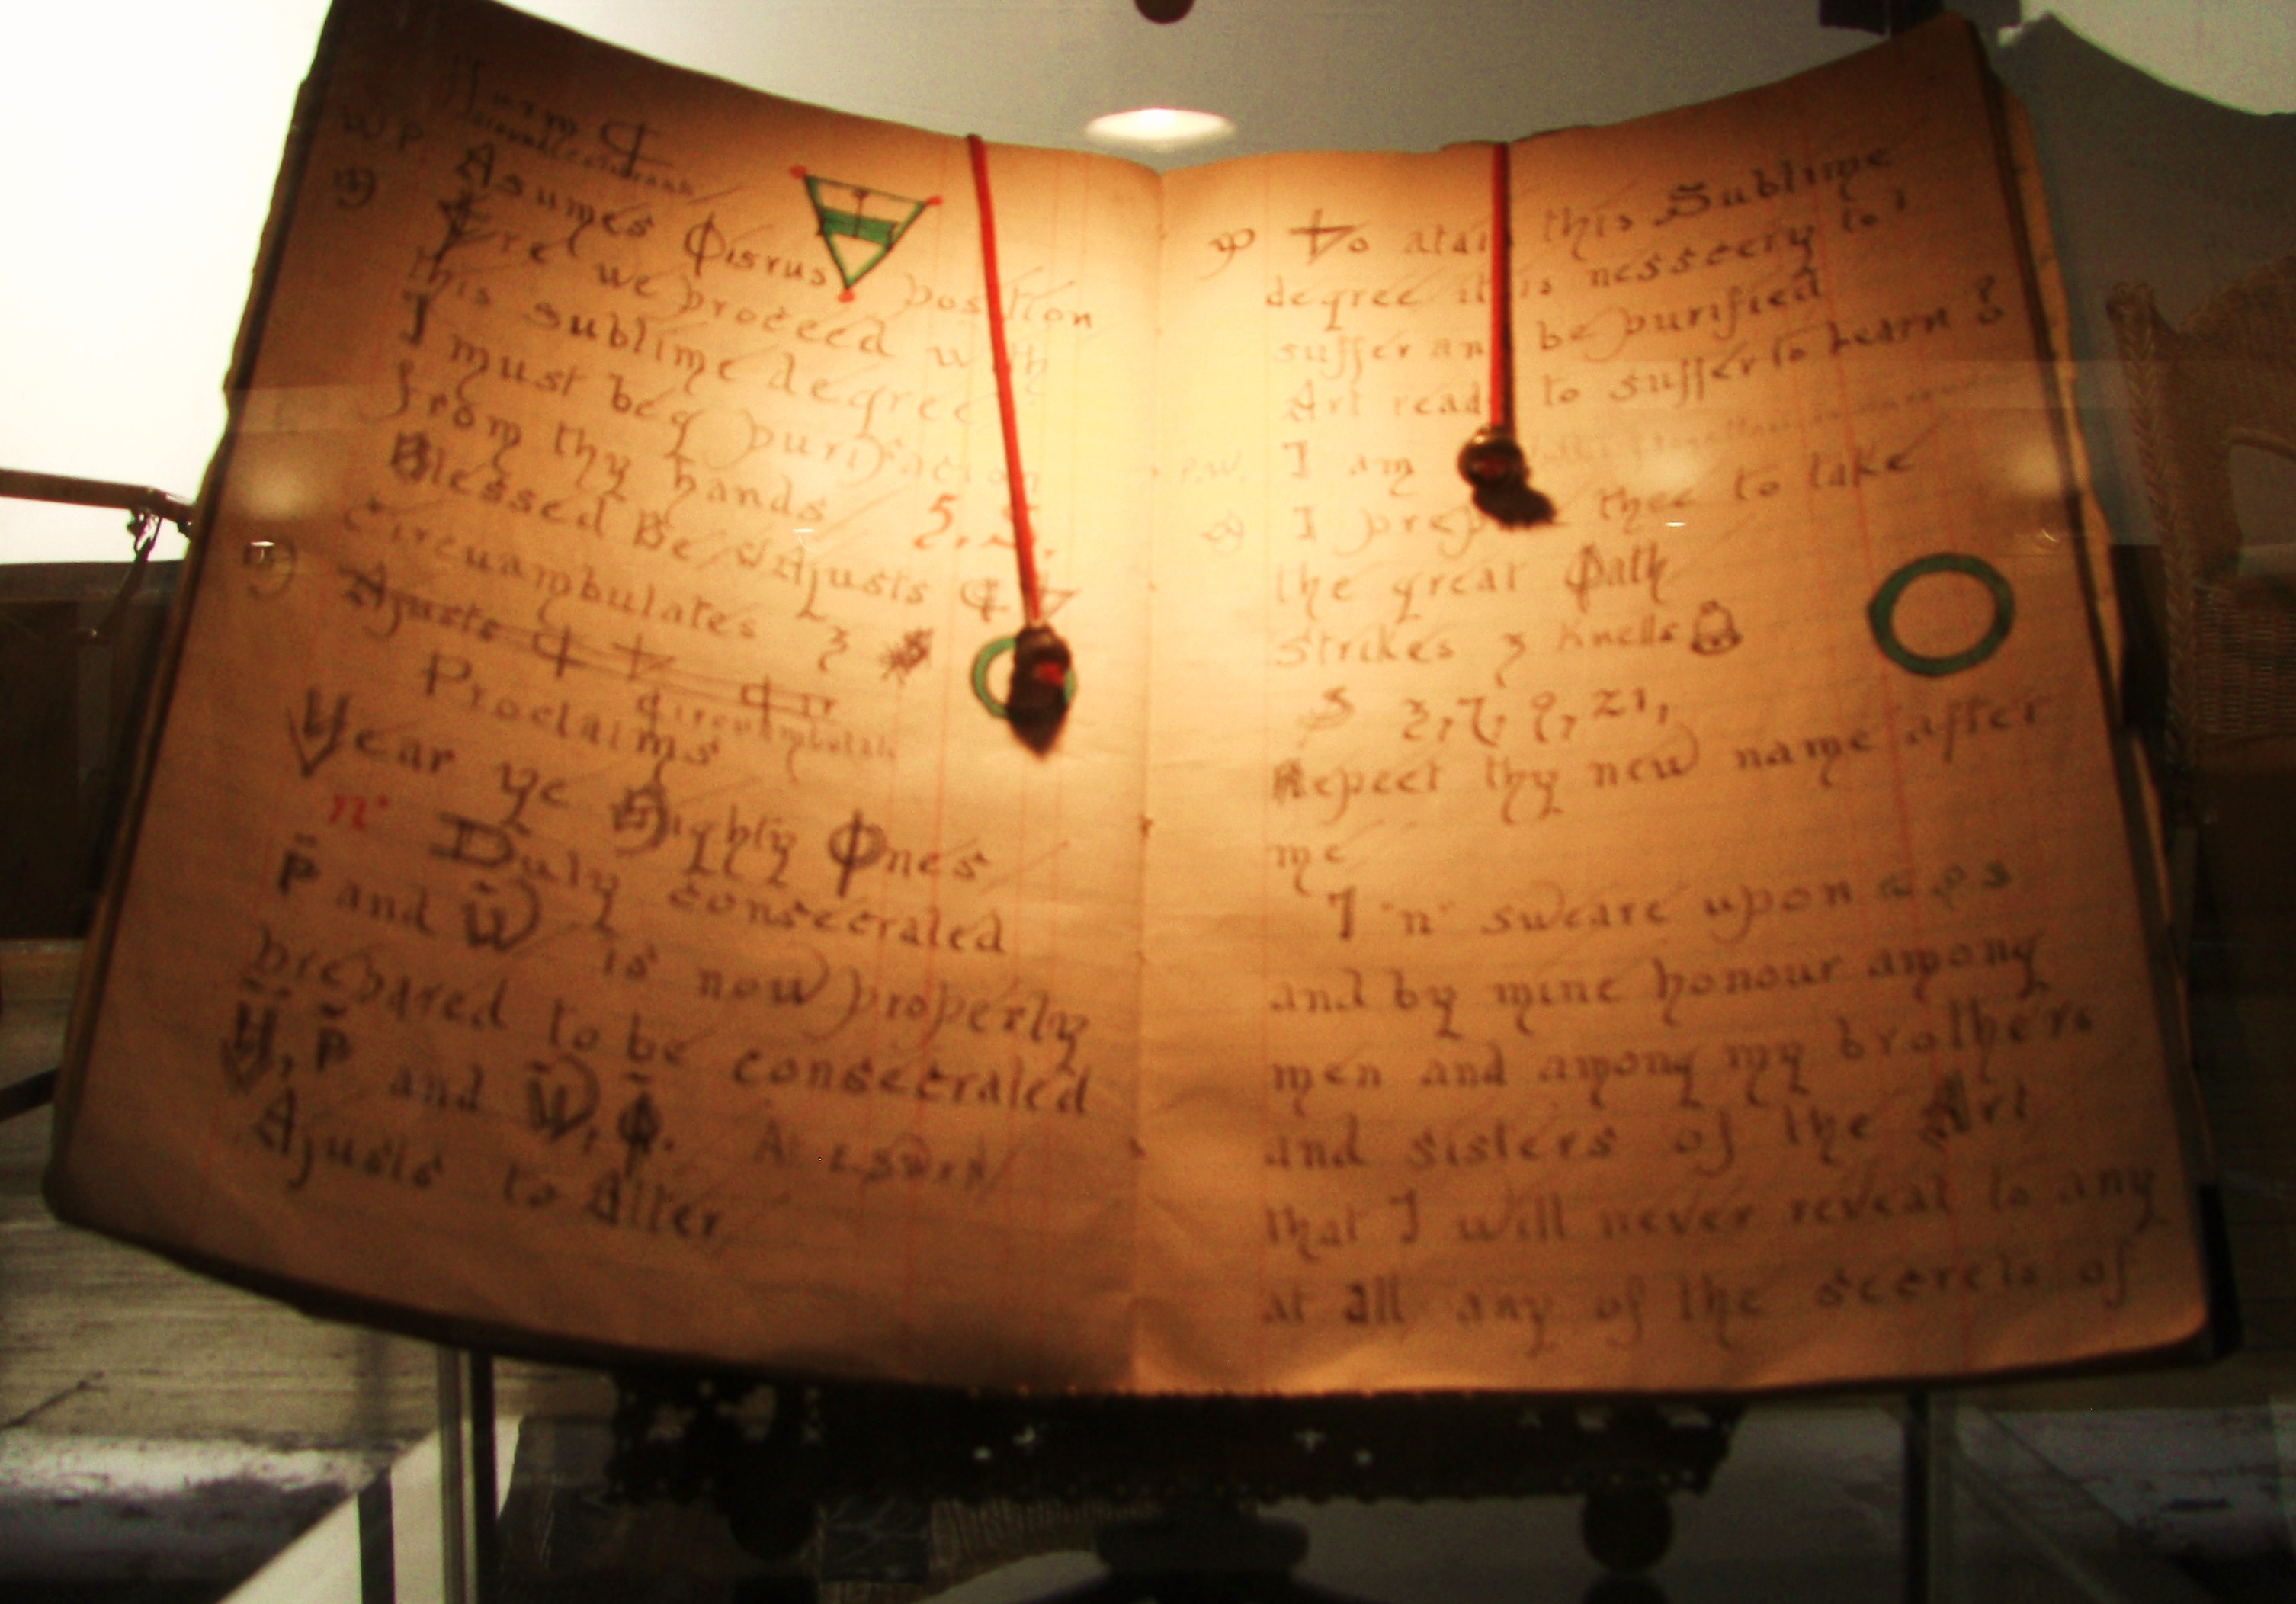 Form
W P
Asumes Osirus position
Ere we proceed with
this sublime degree
I must beg purifacion
from thy hands
Blessed Be Ajusts
Circuambulates 3
Ajusts
Proclaims
Hear ye Mighty Ones
"n" Duly consecrated
P and W is now properly
prepared to be consecrated
H, P and W, Q.
Ajusts to Alter
To atain this Sublime
degree it is nessecery to
suffer and be purified
Art ready to suffer to learn ?
P.W. I am
I prepare thee to take
the great Path
Strikes 3 knells
S 3, 7, 9, 21,
Repeet thy new name after
me
I "n" sweare upon
and by mine honour among
men and among my brothers
and sisters of the Art
that I will never reveal to any
at all any of the secrets of